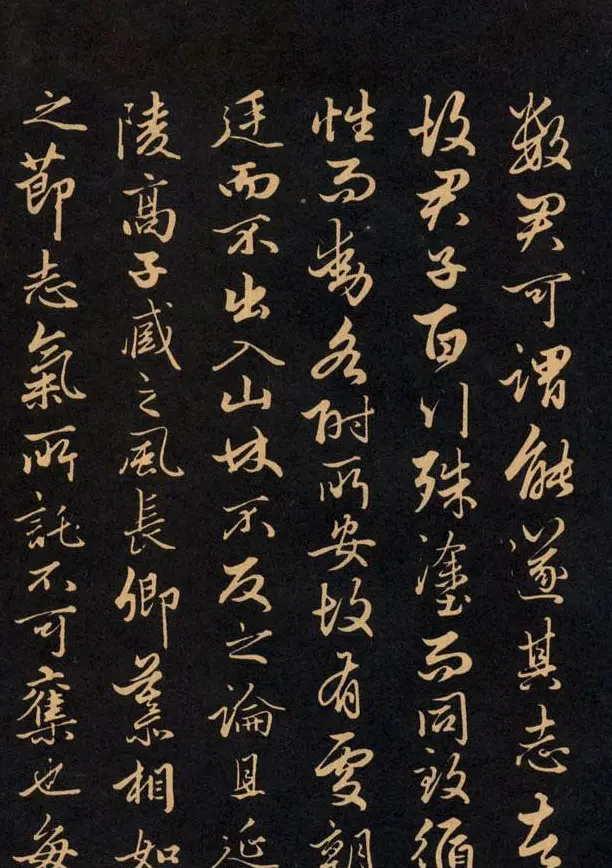 数君可谓能遂其志者
故君子百行殊塗而同致循
性而動各附所安故有處朝
廷而不出入山林不反之論且延
陵高子臧之風長卿慕相如
之節志氣所託不可奪也每